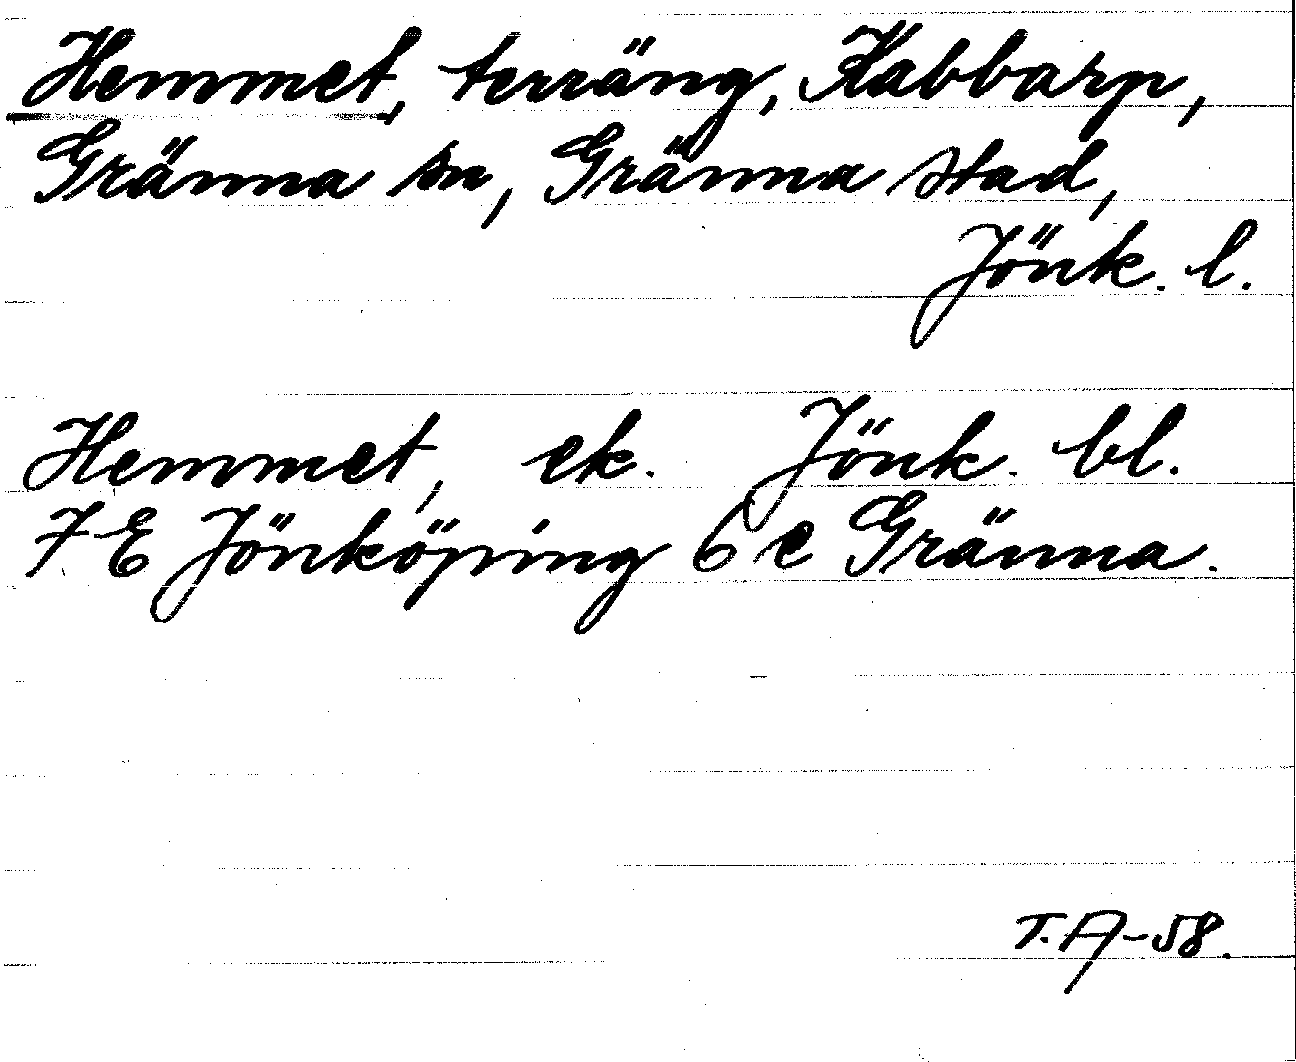 Hemmet, terräng, Kabbarp,
Gränna sn, Gränna stad,
Jönk. l.
Hemmet, ek. Jönk. bl.
7 E Jönköping 6 e Gränna.
T.A-58.